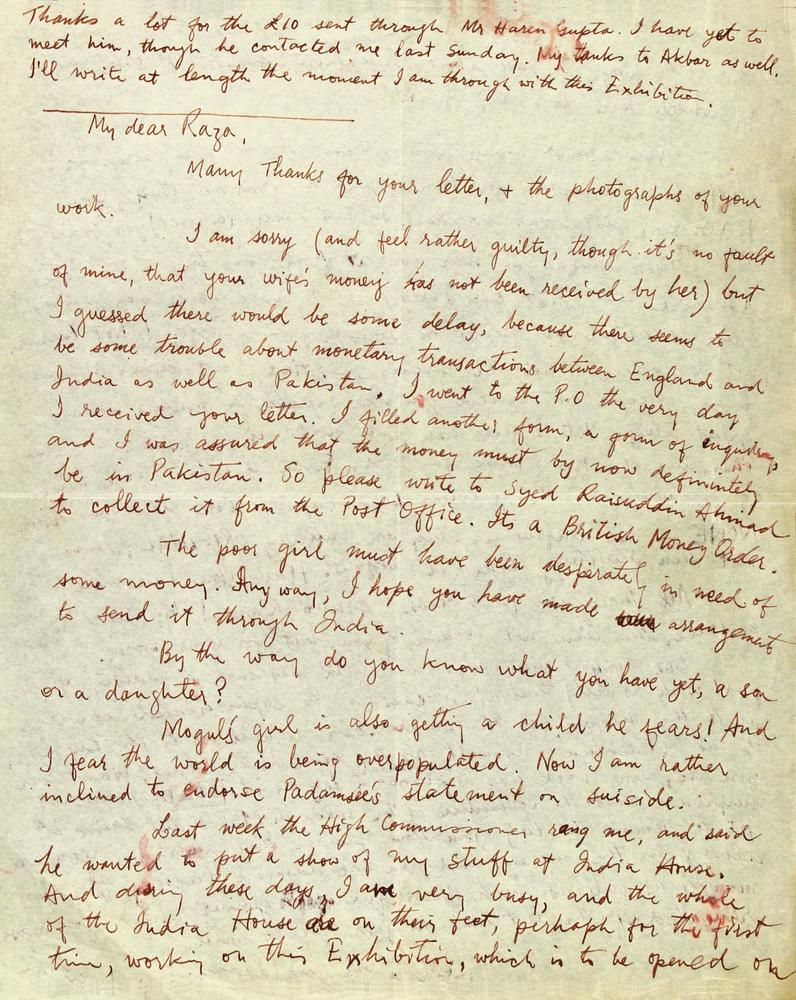 Thanks a lot for the £10 sent through Mr Haren Gupta. I have yet to
meet him, though he contacted me last Sunday. My tanks to Akbar as well.
I'll write at length the moment I am through with this Exhibition.
My dear Raza,
Many Thanks for your letter, + the photographs of your
work.
I am sorry (and feel rather guilty, though it's no fault
of mine, that your wife's money has not been received by her) but
I guessed there would be some delay, because there seems to
be some trouble about monetary transactions between England and
India as well as Pakistan. I went to the P.O the very day
I received your letter. I filled another form, a form of inquiry,
and I was assured that the money must by now definitely
be in Pakistan. So please write to Syed Raisuddin Ahmad
to collect it from the Post Office. Its a British Money Order.
The poor girl must have been desperately in need of
some money. Any way, I hope you have made arrangement
to send it through India.
By the way do you know what you have yet, a son
or a daughter?
Moguls' girl is also getting a child he fears! And
I fear the world is being overpopulated. Now I am rather
inclined to endorse Padamsee's statement on suiside.
Last week the High Commissioner rang me, and said
he wanted to put a show of my stuff at India House.
And during these days, I am very busy, and the whole
of the India House are on their feet, perhaph for the first
time, working on this Exhibition, which is to be opened on